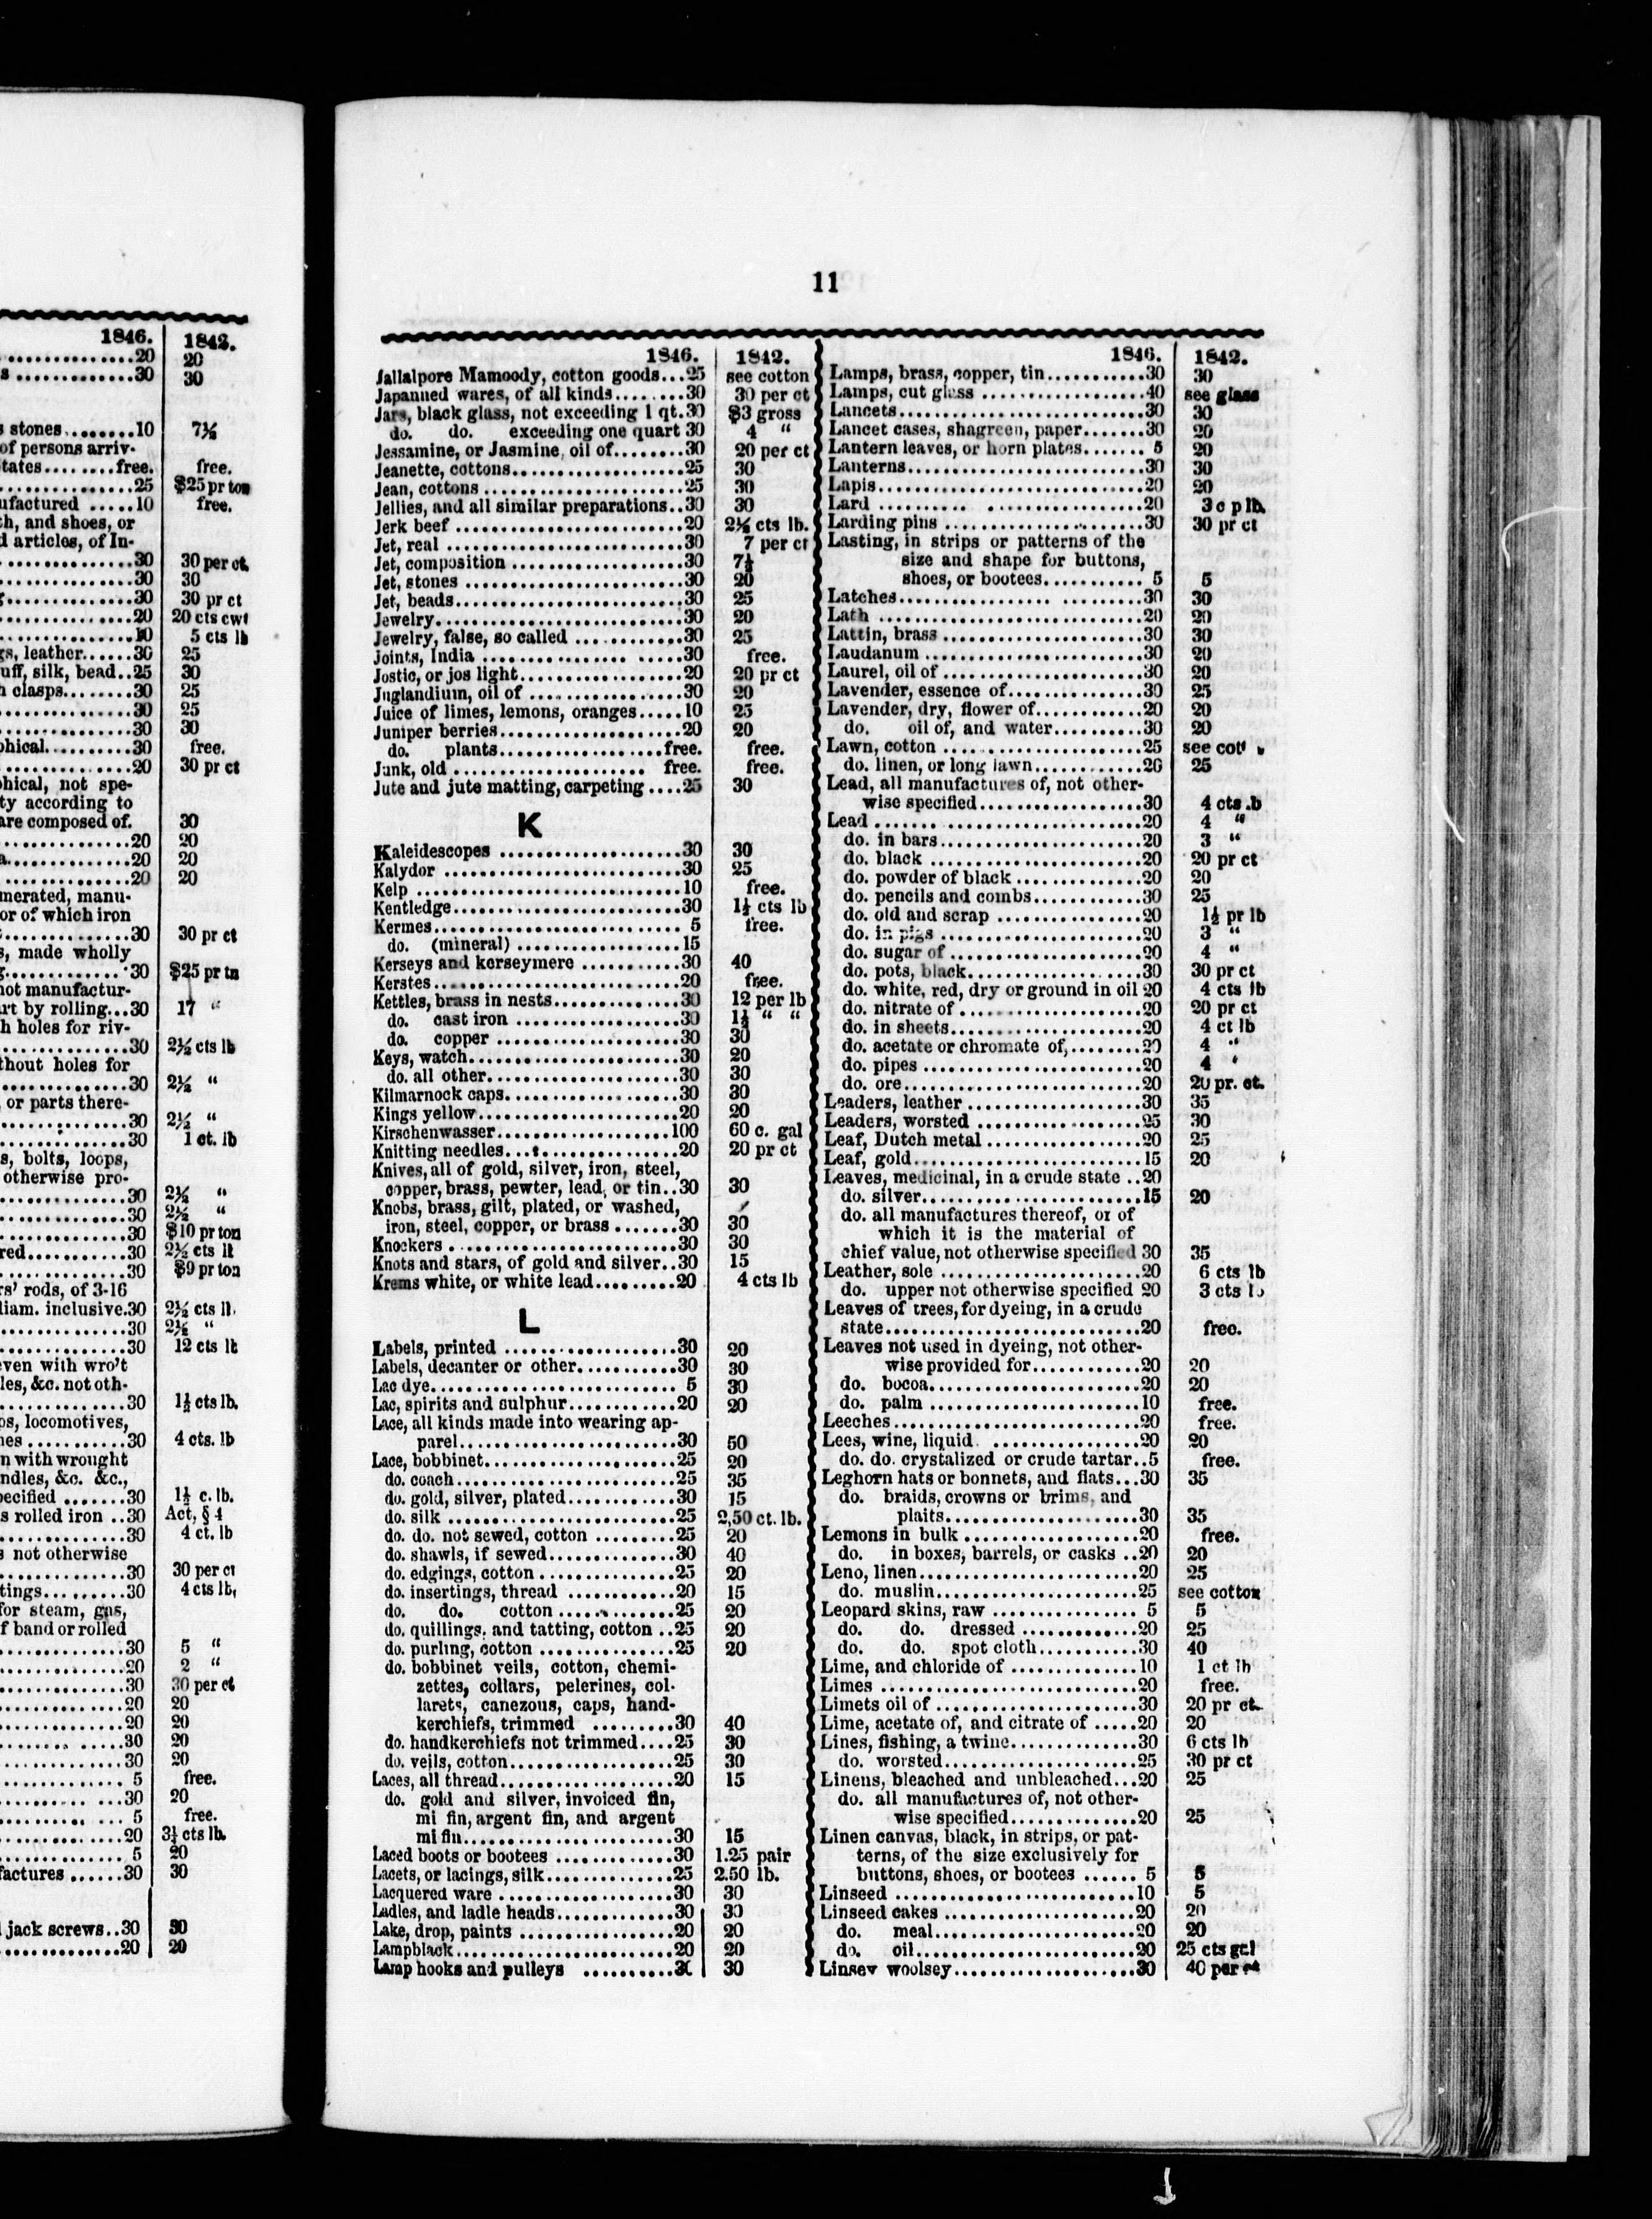 1846. 1842.
20 20
s 30 30
s stones 10 7½
of persons arriv-
tates free. free.
25 $25 pr ton
ufactured 10 free.
th, and shoes, or
d articles, of In-
30 30 per ct.
30 30
30 30 pr ct
20 20 cts cwt
10 5 cts lb
gs, leather 30 25
uff, silk, bead 25 30
h clasps 30 25
30 25
30 30
phical 30 free.
20 30 pr ct
phical, not spe-
ty according to
are composed of. 30
20 20
a 20 20
20 20
merated, manu-
or of which iron
30 30 pr ct
s, made wholly
30 $25 pr tn
not manufactur-
rt by rolling...30 17 "
h holes for riv-
30 2½ cts lb
thout holes for
30 2½ "
or parts there-
30 2½ "
30 1 ct. lb
s, bolts, loops,
otherwise pro-
30 2½ "
30 2½ "
30 $10 pr ton
red 30 2½ cts lt
30 $9 pr ton
rs' rods, of 3-16
diam. inclusive.30 2½ cts lb
30 2½ "
30 12 cts lb
ven with wro't
les, &c. not oth-
30 1½ cts lb.
os, locomotives,
nes 30 4 cts. lb
n with wrought
ndles, &c. &c.,
pecified 30 1½ c. lb.
s rolled iron ..30 Act, § 4
30 4 ct. lb
s not otherwise
30 30 per ct
tings 30 4 cts lb,
for steam, gas,
f band or rolled
30 5 "
20 2 "
30 30 per ct
20 20
20 20
30 20
30 20
5 free.
30 20
5 free.
20 3½ cts lb.
5 20
factures 30 30
jack screws..30 30
20 20
11
1846. 1842.
Jallalpore Mamoody, cotton goods...25 see cotton
Japanned wares, of all kinds.........30 30 per ct
Jars, black glass, not exceeding 1 qt.30 $3 gross
do. do. exceeding one quart 30 4 "
Jessamine, or Jasmine, oil of........30 20 per ct
Jeanette, cottons....................25 30
Jean, cottons .......................25 30
Jellies, and all similar preparations..30 30
Jerk beef ...........................20 2½ cts lb.
Jet, real ...........................30 7 per ct
Jet, composition ....................30 7½
Jet, stones .........................30 20
Jet, beads...........................30 25
Jewelry..............................30 20
Jewelry, false, so called ...........30 25
Joints, India .......................30 free.
Jostic, or jos light.................20 20 pr ct
Juglandium, oil of ..................30 20
Juice of limes, lemons, oranges.....10 25
Juniper berries......................20 20
do. plants...................free. free.
Junk, old ....................... free. free.
Jute and jute matting, carpeting ....25 30
K
Kaleidescopes .......................30 30
Kalydor .............................30 25
Kelp ................................10 free.
Kentledge............................30 1½ cts lb
Kermes............................... 5 free.
do. (mineral) ..................15
Kerseys and kerseymere ..............30 40
Kerstes..............................20 free.
Kettles, brass in nests..............30 12 per lb
do. cast iron ..................30 1½ " "
do. copper .....................30 30
Keys, watch..........................30 20
do. all other........................30 30
Kilmarnock caps......................30 30
Kings yellow.........................20 20
Kirschenwasser......................100 60 c. gal
Knitting needles.....................20 20 pr ct
Knives, all of gold, silver, iron, steel,
copper, brass, pewter, lead, or tin..30 30
Knobs, brass, gilt, plated, or washed,
iron, steel, copper, or brass .......30 30
Knockers ............................30 30
Knots and stars, of gold and silver..30 15
Krems white, or white lead.........20 4 cts lb
L
Labels, printed .....................30 20
Labels, decanter or other...........30 30
Lac dye.............................. 5 30
Lac, spirits and sulphur............20 20
Lace, all kinds made into wearing ap-
parel...........................30 50
Lace, bobbinet.......................25 20
do. coach............................25 35
do. gold, silver, plated............30 15
do. silk ............................25 2,50 ct. lb.
do. do. not sewed, cotton ..........25 20
do. shawls, if sewed................30 40
do. edgings, cotton .................25 20
do. insertings, thread .............20 15
do. do. cotton ..............25 20
do. quillings, and tatting, cotton ..25 20
do. purling, cotton .................25 20
do. bobbinet veils, cotton, chemi-
zettes, collars, pelerines, col-
larets, canezous, caps, hand-
kerchiefs, trimmed .........30 40
do. handkerchiefs not trimmed....25 30
do. veils, cotton...................25 30
Laces, all thread....................20 15
do. gold and silver, invoiced fin,
mi fin, argent fin, and argent
mi fin...........................30 15
Laced boots or bootees ..............30 1.25 pair
Lacets, or lacings, silk.............25 2.50 lb.
Lacquered ware ......................30 30
Ladles, and ladle heads..............30 30
Lake, drop, paints ..................20 20
Lampblack............................20 20
Lamp hooks and pulleys ..........30 30
1846. 1842.
Lamps, brass, copper, tin............30 30
Lamps, cut glass ....................40 see glass
Lancets..............................30 30
Lancet cases, shagreen, paper.......30 20
Lantern leaves, or horn plates....... 5 20
Lanterns.............................30 30
Lapis................................20 20
Lard ................................20 3 c p lb.
Larding pins ........................30 30 pr ct
Lasting, in strips or patterns of the
size and shape for buttons,
shoes, or bootees........... 5 5
Latches..............................30 30
Lath ................................20 20
Lattin, brass .......................30 30
Laudanum ............................30 20
Laurel, oil of ......................30 20
Lavender, essence of................30 25
Lavender, dry, flower of............20 20
do. oil of, and water..........30 20
Lawn, cotton ........................25 see cot
do. linen, or long lawn............20 25
Lead, all manufactures of, not other-
wise specified..................30 4 cts .b
Lead ................................20 4 "
do. in bars.........................20 3 "
do. black ..........................20 20 pr ct
do. powder of black ...............20 20
do. pencils and combs..............30 25
do. old and scrap .................20 1½ pr lb
do. in pigs ........................20 3 "
do. sugar of .......................20 4 "
do. pots, black.....................30 30 pr ct
do. white, red, dry or ground in oil 20 4 cts lb
do. nitrate of .....................20 20 pr ct
do. in sheets.......................20 4 ct lb
do. acetate or chromate of,........20 4 "
do. pipes ..........................20 4 "
do. ore.............................20 20 pr. ct.
Leaders, leather ....................30 35
Leaders, worsted ....................25 30
Leaf, Dutch metal ...................20 25
Leaf, gold...........................15 20
Leaves, medicinal, in a crude state ..20
do. silver..........................15 20
do. all manufactures thereof, or of
which it is the material of
chief value, not otherwise specified 30 35
Leather, sole .......................20 6 cts lb
do. upper not otherwise specified 20 3 cts lb
Leaves of trees, for dyeing, in a crude
state...............................20 free.
Leaves not used in dyeing, not other-
wise provided for.............20 20
do. bocoa..........................20 20
do. palm ..........................10 free.
Leeches..............................20 free.
Lees, wine, liquid. .................20 20
do. do. crystalized or crude tartar..5 free.
Leghorn hats or bonnets, and flats...30 35
do. braids, crowns or brims, and
plaits.......................30 35
Lemons in bulk ......................20 free.
do. in boxes, barrels, or casks ..20 20
Leno, linen..........................20 25
do. muslin..........................25 see cotton
Leopard skins, raw .................. 5 5
do. do. dressed .............20 25
do. do. spot cloth...........30 40
Lime, and chloride of ...............10 1 ct lb
Limes ...............................20 free.
Limets oil of .......................30 20 pr ct.
Lime, acetate of, and citrate of .....20 20
Lines, fishing, a twine..............30 6 cts lb
do. worsted.........................25 30 pr ct
Linens, bleached and unbleached...20 25
do. all manufactures of, not other-
wise specified..............20 25
Linen canvas, black, in strips, or pat-
terns, of the size exclusively for
buttons, shoes, or bootees ...... 5 5
Linseed .............................10 5
Linseed cakes .......................20 20
do. meal......................20 20
do. oil.......................20 25 cts gal
Linsey woolsey.......................30 40 per ct